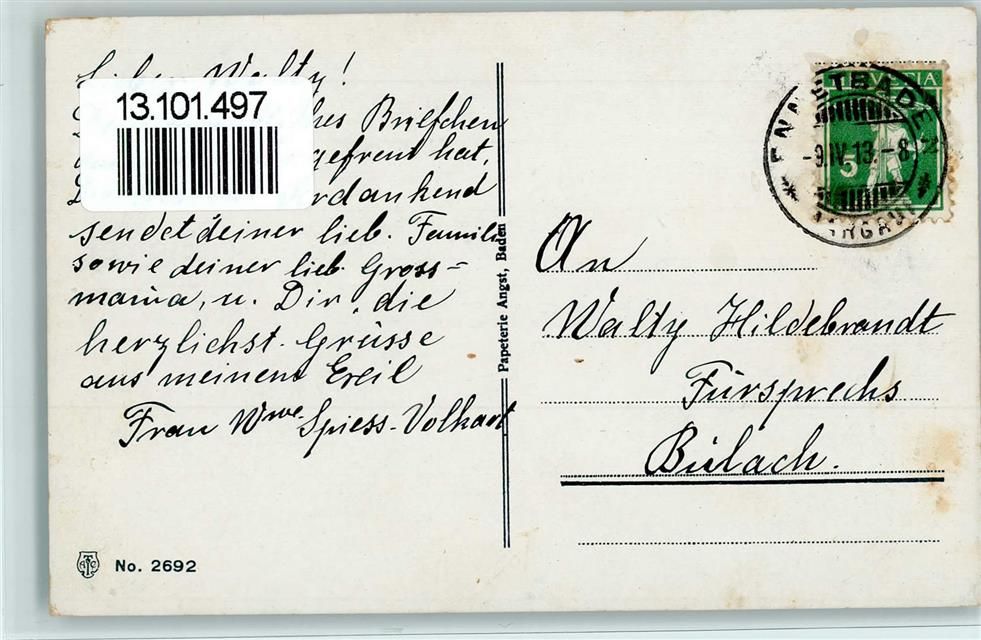 Walty!
13.101.497
Briefchen
gefreut hat,
sendet deiner lieb. Familie
sowie deiner lieb. Gross=
mama, u. Dir, die
herzlichst. Grüsse
aus meinem Exil
Frau Wwe. Spiess-Volkart
No. 2692
Papeterie Angst, Baden
HELVETIA
5
ENNETBADEN
-9.IV.13.-8
AARGAU
An
Walty Hildebrandt
Fürsprechs
Bülach.